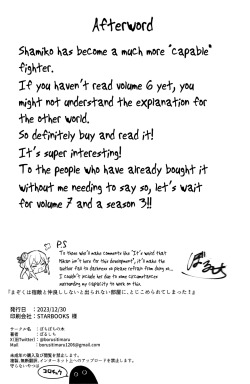 Afterword
Shamiko has become a much more "capable"
fighter.
If you haven't read volume 6 yet, you
might not understand the explanation for
the other world.
So definitely buy and read it!
It's super interesting!
To the people who have already bought it
without me needing to say so, let's wait
for volume 7 and a season 3!!
P.S
To those who'll make comments like "It's weird that
Mikan isn't here for this development", it'll make the
author fall to darkness so please refrain from doing so...
I couldn't include her due to some circumstances
surrounding my capacity to work on this.
『まぞくは宿敵と仲良ししないと出られない部屋に、とじこめられてしまった!』
発行日 :2023/12/30
印刷会社:STARBOOKS 様
サークル名 :ぼるぼらの木
著者 :ぼるいち
X(旧Twitter) :@boruitimari
Mail :boruitimari1206@gmail.com
未成年の購入及び閲覧を禁止します。
複製、無断転載、インターネット上へのアップロードを禁止します。
守らないやつは